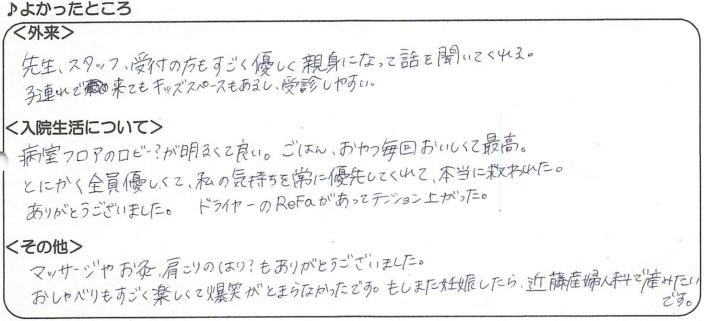 ♪よかったところ
<外来>
先生、スタッフ、受付の方もすごく優しく親身になって話を聞いてくれる。
子連れで来てもキッズスペースもあるし、受診しやすい。
<入院生活について>
病室フロアのロビー?が明るくて良い。ごはん、おやつ毎回おいしくて最高。
とにかく全員優しくて、私の気持ちを常に優先してくれて、本当に救われた。
ありがとうございました。 ドライヤーのReFaがあってテンション上がった。
<その他>
マッサージやお灸、肩こりのはり?もありがとうございました。
おしゃべりもすごく楽しくて爆笑がとまらなかったです。もしまた妊娠したら、近藤産婦人科で産みたい
です。